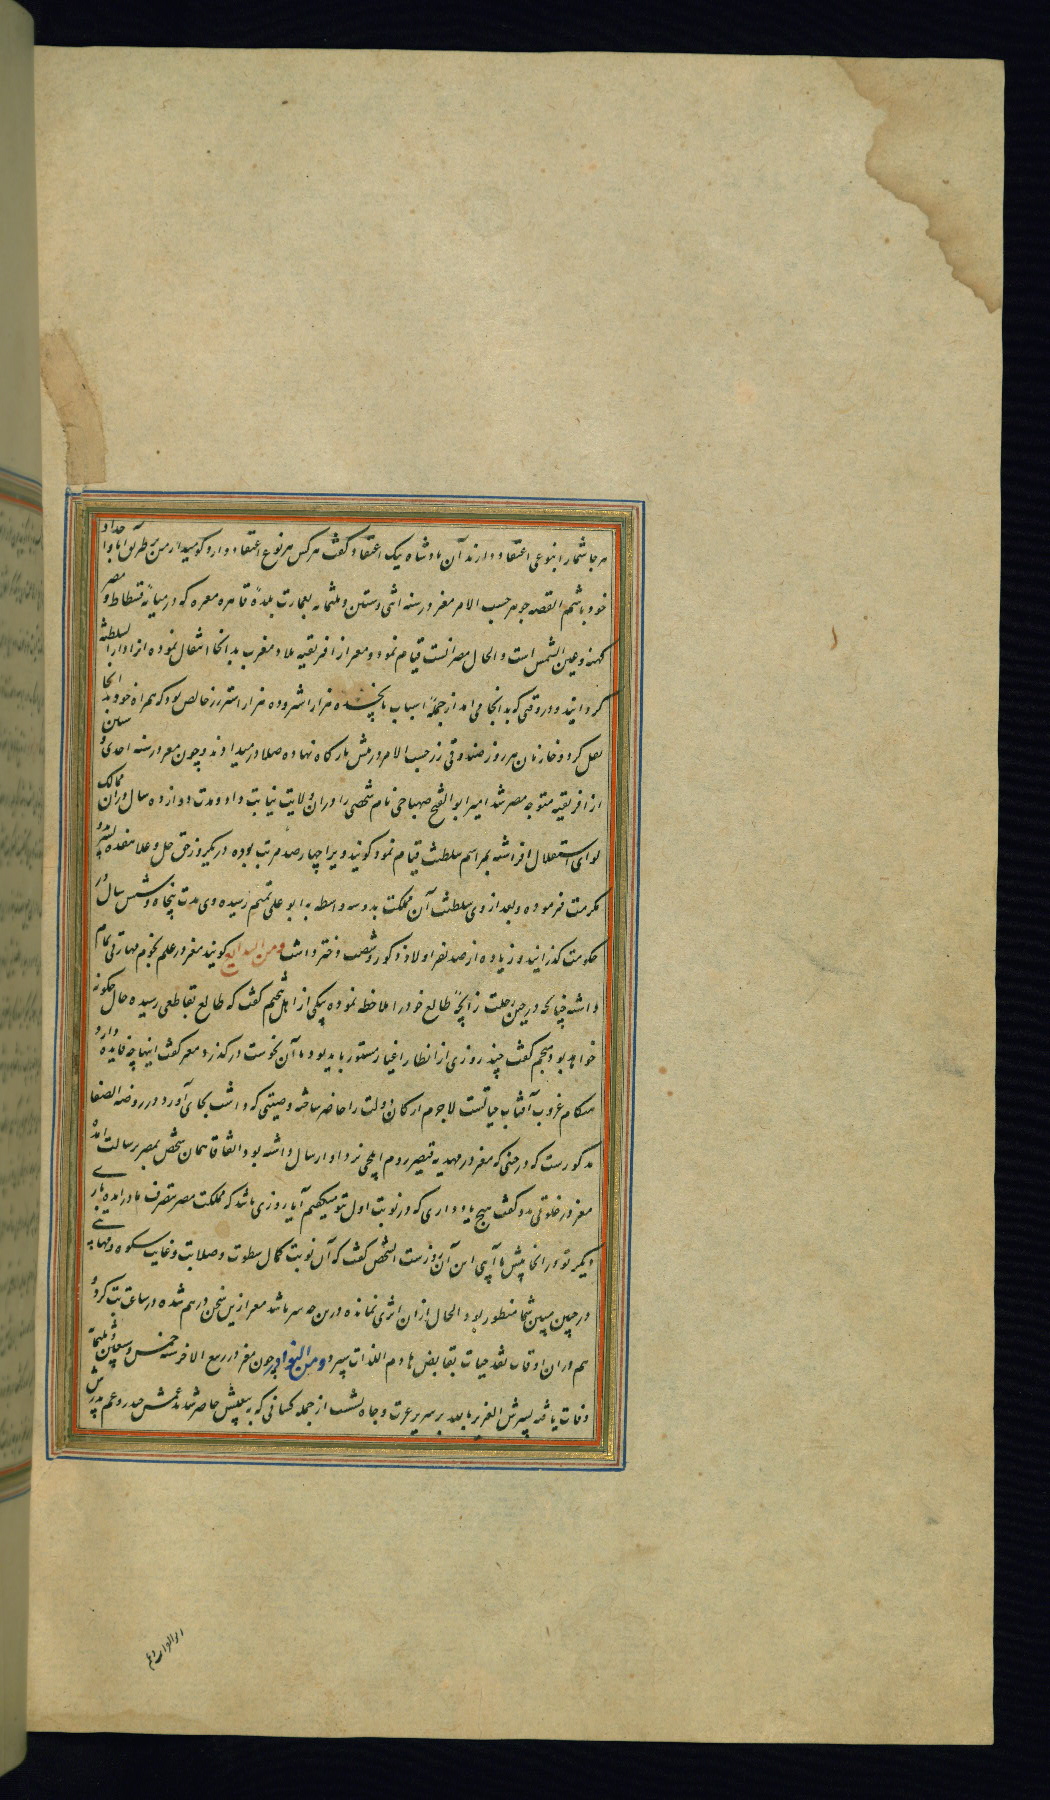 هر جا شمار ا بنوعی اعتقاد دارند آن پادشاه یک اعتقاد گفت هر کس هر نوع اعتقاد دارد کو میدار من بر طریق آبا و اجداد
خود باشم القصه جوهر حسب الامر معز در سنه اثنی و ستین و ثلثمایه بعمارت بلدهٔ قاهره معزه که در میانهٔ فسطاط و مصر
کهنه و عین الشمس است و الحال مصر آنست قیام نمود و معز از افریقیه بلاد مغرب بدانجا انتقال نموده آنرا دار السلطنه
گردانید و در وقتی که بدانجا می آمد از جملهٔ اسباب پانزده هزار اشتر و ده هزار استر زر خالص بود که همراه خود بدانجا
نقل کرد و خازنان هر روز صندوقی زر حسب الامر در پیش بارگاه نهاده صلا در میدادند و چون معز در سنه احدی و ستین
از افریقیه متوجه مصر شد امیر ابو الفتح صنهاجی نام شخصی را در ان ولایت نیابت داد و مدت دوازده سال در ان ممالک
لوای استقلال افراشته بمراسم سلطنت قیام نمود گویند ویرا چهار صد مرتب بوده در یکروز حق جل و علا هفده پسر
مکرمت فرموده و بعد از وی سلطنت آن مملکت بدو سه واسطه به ابو علی تمیم رسیده وی مدت پنجاه و شش سال در
حکومت گذرانید و زیاده از صد نفر اولاد ذکور و شصت دختر داشت ومن البدایع گویند معز در علم نجوم مهارتی تمام
داشته چنانچه در حین رحلت زایچهٔ طالع خود را ملاحظه نموده یکی از اهل تنجیم گفت که طالع بقاطعی رسیده حال چگونه
خواهد بود منجم گفت چند روزی از انظار اغیار مستور باید بود تا آن نحوست در گذرد معز گفت اینها چه فایده دارد و
هنکام غروب آفتاب حیاتست لاجرم ارکان دولت را حاضر ساخته وصیتی که داشت بجای آورد و در روضه الصفا
مذکورست که در حینی که معز در مهدیه قیصر روم ایلچی نزد او ارسال داشته بود اتفاقا همان شخص بمصر برسالت آمده
معز در خلوتی بدو گفت هیچ یاد داری که در نوبت اول بتو میگفتم آیا روزی باشد که مملکت مصر بتصرف ما در آمده باری
دیگر تو در انجا پیش ما آیی این آن روزست آن شخص گفت که آن نوبت کمال سطوت و صلابت و غایت شکوه و مهابتی
در جبین مبین شما منظور بود الحال از ان اثری نمانده درین چه سر باشد معز ازین سخن درهم شده در ساعت تب کرد و
هم در ان اوقات نقد حیات بقابض هادم اللذات سپرد ومن النوادر چون معز در ربیع الاخر سنه خمس و ستین و ثلثمایة
وفات یافته پسرش العزیز بالله بر سریر عزت و جاه نشست از جمله کسانی که به بیعتش حاضر شدند عمش حیدر و عم پدرش